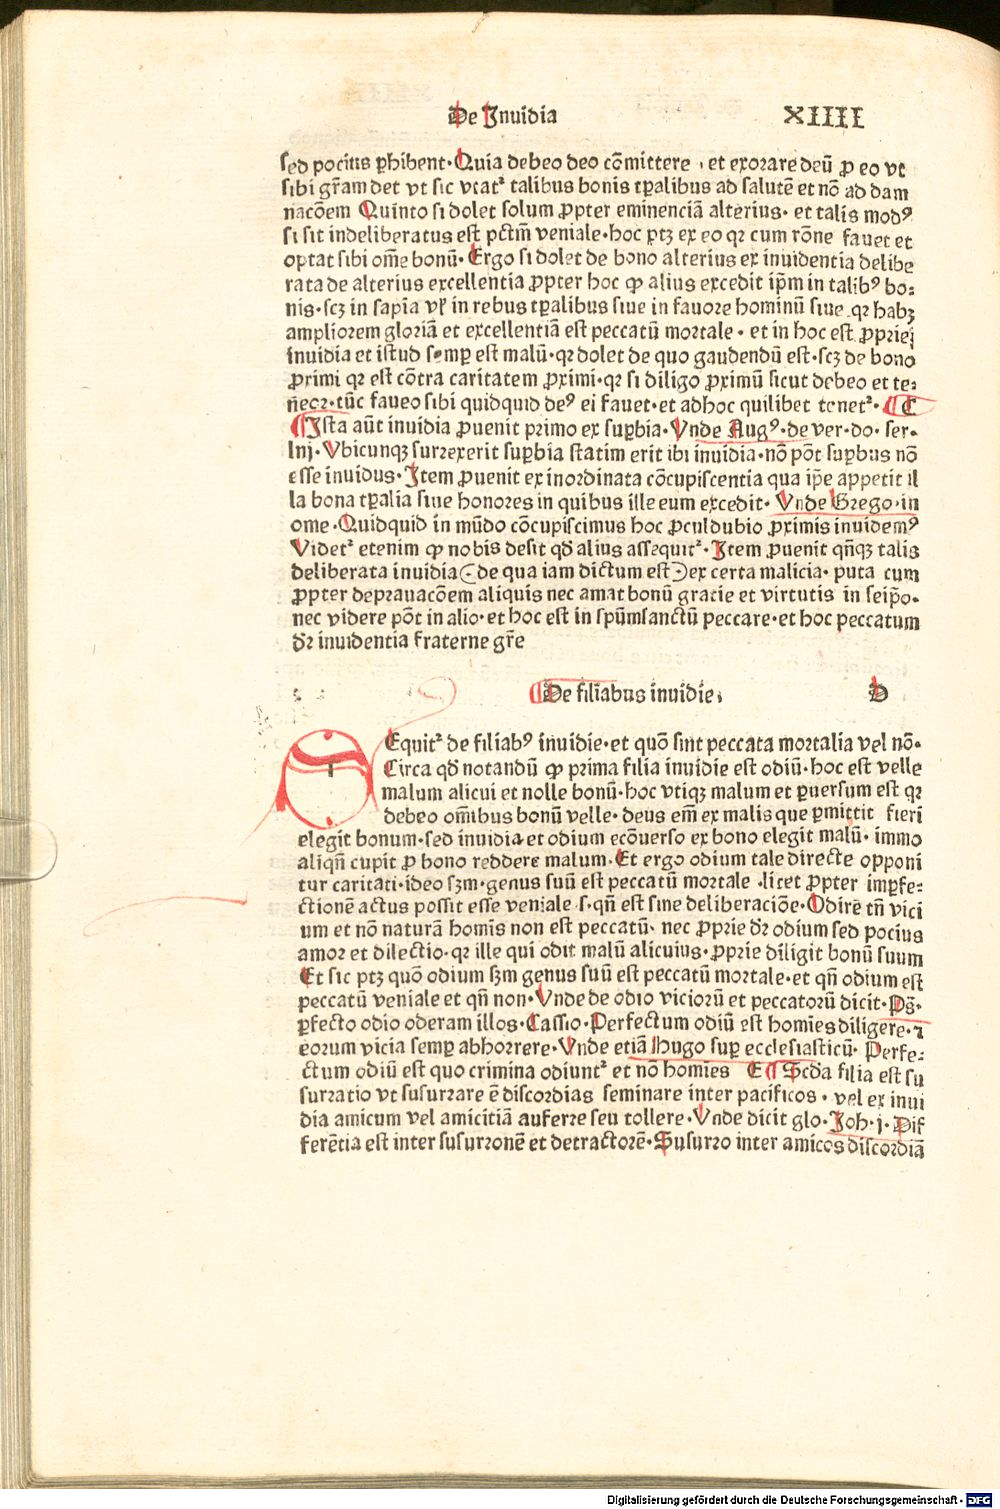 De Inuidia XIIII
sed pocius ꝑhibent· Quia debeo deo cōmittere · et exorare deū ꝓ eo vt
sibi gr̄am det vt sic vtatᷣ talibus bonis tꝑalibus ad salutē et nō ad dam
nacōem Quinto si dolet solum ꝓpter eminenciā alterius· et talis modꝰ
si sit indeliberatus est pctm̄ veniale·hoc ptꝫ ex eo qꝛ cum rōne fauet et
optat sibi om̄e bonū· Ergo si dolet de bono alterius ex inuidentia delibe
rata de alterius excellentia ꝓpter hoc ꝙ alius excedit ip̄m in talibꝰ bo⸗
nis·scꝫ in sapīa vl̓ in rebus tꝑalibus siue in fauore hominū siue qꝛ habꝫ
ampliorem gloriā et excellentiā est peccatū mortale · et in hoc est ꝓprie
inuidia et istud semꝑ est malū·qꝛ dolet de quo gaudendū est·scꝫ de bono
ꝓximi qꝛ est cōtra caritatem ꝓximi·qꝛ si diligo ꝓximū sicut debeo et te⸗
neor·tūc faueo sibi quidquid deꝰ ei fauet·et adhoc quilibet tenetᷣ· C
Ista aūt inuidia ꝓuenit primo ex suꝑbia· Vnde Augꝰ·de ver·do· ser⸗
lnj· Vbicunqꝫ surrexerit suꝑbia statim erit ibi inuidia·nō pōt suꝑbus nō
esse inuidus· Item ꝓuenit ex inordinata cōcupiscentia qua ip̄e appetit il
la bona tꝑalia siue honores in quibus ille eum excedit· Vnde Grego·in
ome· Quidquid in mūdo cōcupiscimus hoc ꝓculdubio ꝓximis inuidemꝰ
Videtᷣ etenim ꝙ nobis desit qd̄ alius assequitᷣ· Item ꝓuenit qn̄qꝫ talis
deliberata inuidia (·de qua iam dictum est·) ex certa malicia· puta cum
ꝓpter deprauacōem aliquis nec amat bonū gracie et virtutis in seip̄o·
nec videre pōt in alio·et hoc est in spūmsanctū peccare·et hoc peccatum
dr̄ inuidentia fraterne gr̄e
De filiabus inuidie· D
Equitᷣ de filiabꝰ inuidie·et quō sint peccata mortalia vel nō·
Circa qd̄ notandū ꝙ prima filia inuidie est odiū·hoc est velle
malum alicui et nolle bonū·hoc vtiqꝫ malum et ꝑuersum est qꝛ
debeo om̄ibus bonū velle· deus em̄ ex malis que ꝑmittit fieri
elegit bonum·sed inuidia et odium ecōuerso ex bono elegit malū· immo
aliqn̄ cupit ꝓ bono reddere malum· Et ergo odium tale directe opponi
tur caritati·ideo sꝫm·genus suū est peccatū mortale ·licet ꝓpter imꝑfe⸗
ctionē actus possit esse veniale ·s·qn̄ est sine deliberaciōe· Odire tn̄ vici
um et nō naturā homīs non est peccatū· nec ꝓprie dr̄ odium sed pocius
amor et dilectio·qꝛ ille qui odit malū alicuius· ꝓprie diligit bonū suum
Et sic ptꝫ quō odium sꝫm genus suū est peccatū mortale·et qn̄ odium est
peccatū veniale et qn̄ non· Vnde de odio viciorū et peccatorū dicit· Ps̄·
ꝑfecto odio oderam illos· Cassio· Perfectum odiū est homīes diligere·⁊
eorum vicia semꝑ abhorrere· Vnde etiā Hugo suꝑ ecclesiasticū· Perfe⸗
ctum odiū est quo crimina odiuntᷣ et nō homīes E Scd̄a filia est su
surratio vt susurrare ē discordias seminare inter pacificos · vel ex inui
dia amicum vel amicitiā auferre seu tollere· Vnde dicit glo· Joh·j· Dif
ferētia est inter susurronē et detractorē· Susurro inter amicos discordiā
Digitalisierung gefördert durch die Deutsche Forschungsgemeinschaft · DFG